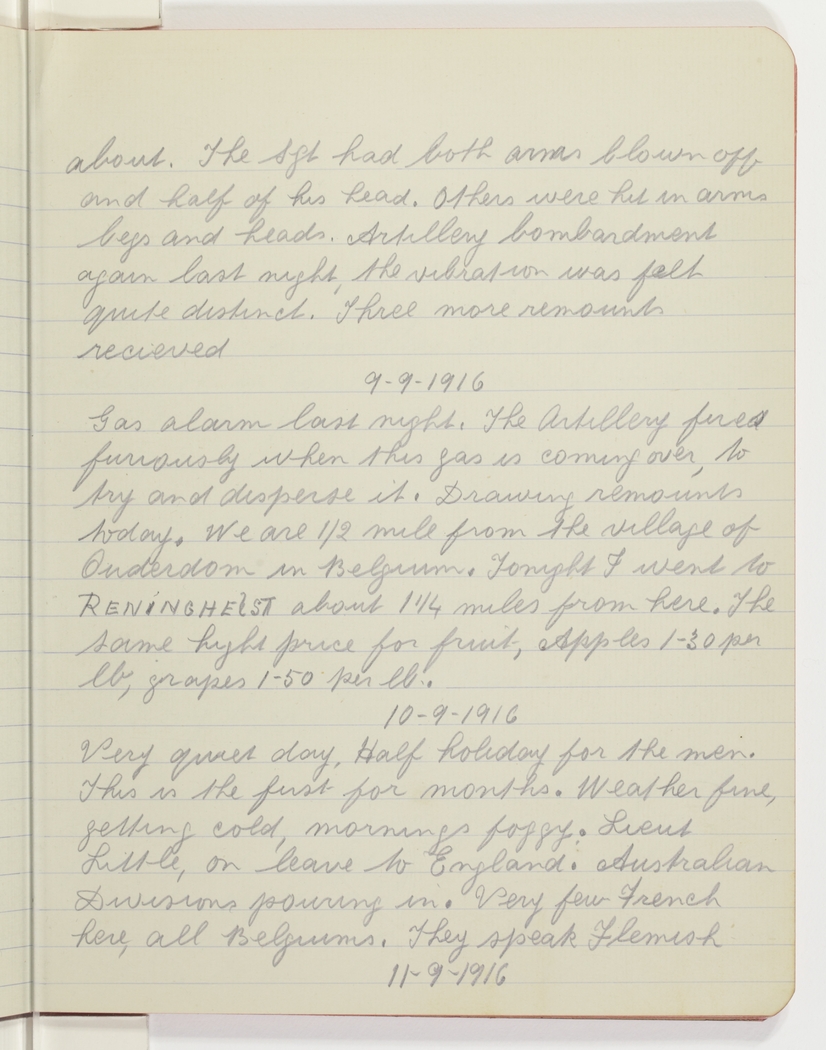 about. The Sgt had both arms blown off
and half of his head. Others were hit in arms
legs and heads. Artillery bombardment
again last night, the vibration was felt
quite distinct. Three more remounts
recieved
9-9-1916
Gas alarm last night. The Artillery fired
furiously when this gas is coming over, to
try and disperse it. Drawing remounts
today. We are 1/2 mile from the village of
Ouderdom in Belgium. Tonight I went to
RENINGHELST about 1 1/4 miles from here. The
same hight price for fruit, Apples 1-30 per
lb, grapes 1-50 per lb.
10-9-1916
Very quiet day, Half holiday for the men.
This is the first for months. Weather fine,
getting cold, mornings foggy. Lieut
Little, on leave to England. Australian
Divisions pouring in. Very few French
here, all Belgiums. They speak Flemish
11-9-1916